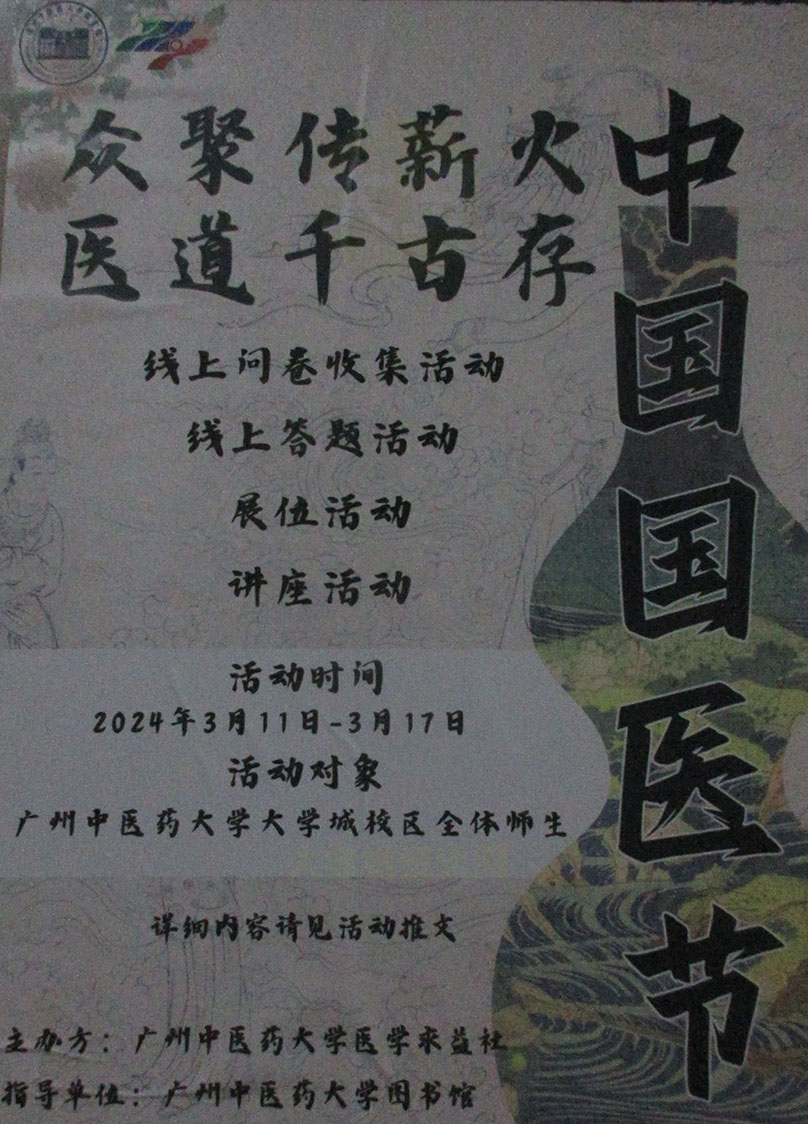 众聚传薪火
医道千古存
中国国医节
线上问卷收集活动
线上答题活动
展位活动
讲座活动
活动时间
2024年3月11日-3月17日
活动对象
广州中医药大学大学城校区全体师生
详细内容请见活动推文
主办方：广州中医药大学医学求益社
指导单位：广州中医药大学图书馆